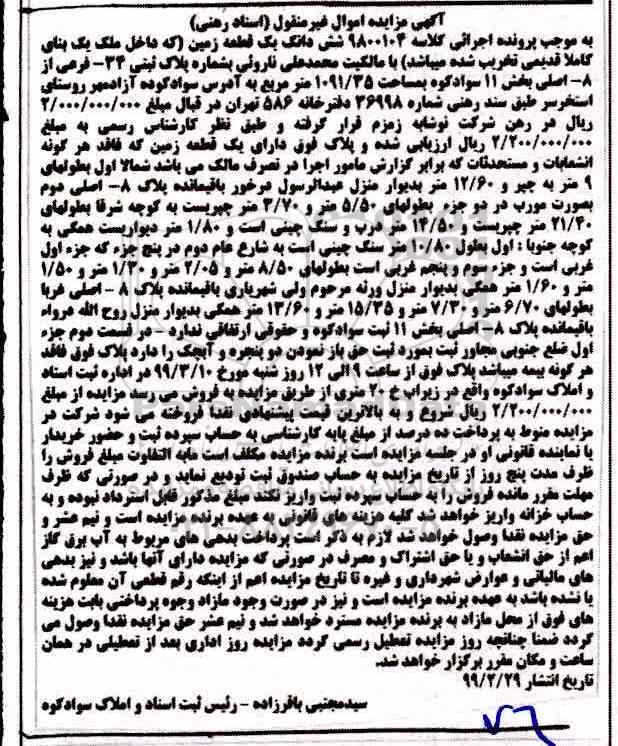 آگهی مزایده اموال غیرمنقول (اسناد رهنی)
به موجب پرونده اجرائی کلاسه ۹۸۰۰۱۰۴ شش دانگ یک قطعه زمین (که داخل ملک یک بنای
کاملا قدیمی تخریب شده میباشد) با مالکیت محمدعلی ناروئی بشماره پلاک ثبتی ۳۴- فرعی از
۸- اصلی بخش ۱۱ سوادکوه بمساحت ۱۰۹۱/۳۵ متر مربع به آدرس سوادکوه آزادمهر روستای
استخرسر طبق سند رهنی شماره ۳۶۹۹۸ دفترخانه ۵۸۶ تهران در قبال مبلغ ۲/۰۰۰/۰۰۰/۰۰۰
ریال در رهن شرکت نوشابه زمزم قرار گرفته و طبق نظر کارشناس رسمی به مبلغ
۲/۲۰۰/۰۰۰/۰۰۰ ریال ارزیابی شده و پلاک فوق دارای یک قطعه زمین که فاقد هر گونه
انشعابات و مستحدثات که برابر گزارش مامور اجرا در تصرف مالک می باشد شمالا اول بطولهای
۹ متر به چپر و ۱۲/۶۰ متر بدیوار منزل عبدالرسول درخور باقیمانده پلاک ۸- اصلی دوم
بصورت مورب در دو جزء بطولهای ۵/۵۰ متر و ۳/۷۰ متر چپریست به کوچه شرقا بطولهای
۲۱/۴۰ متر چپریست و ۱۴/۵۰ متر درب و سنگ چینی است و ۱/۸۰ متر دیواریست همگی به
کوچه جنوبا : اول بطول ۱۰/۸۰ متر سنگ چینی است به شارع عام دوم در پنج جزء که جزء اول
غربی است و جزء سوم و پنجم غربی است بطولهای ۸/۵۰ متر و ۲/۰۵ متر و ۱/۳۰ متر و ۱/۵۰
متر و ۱/۶۰ متر همگی بدیوار منزل ورثه مرحوم ولی شهریاری باقیمانده پلاک ۸ - اصلی غربا
بطولهای ۶/۷۰ متر و ۷/۳۰ متر و ۱۵/۳۵ متر و ۱۳/۶۰ متر همگی بدیوار منزل روح الله مرواء
باقیمانده پلاک ۸- اصلی بخش ۱۱ ثبت سوادکوه و حقوقی ارتفاقی ندارد - در قسمت دوم جزء
اول ضلع جنوبی مجاور ثبت بمورد ثبت حق باز نمودن دو پنجره و آبچک را دارد پلاک فوق فاقد
هر گونه بیمه میباشد پلاک فوق از ساعت ۹ الی ۱۲ روز شنبه مورخ ۹۹/۳/۱۰ در اداره ثبت اسناد
و املاک سوادکوه واقع در زیراب خ ۲۰ متری از طریق مزایده به فروش می رسد مزایده از مبلغ
۲/۲۰۰/۰۰۰/۰۰۰ ریال شروع و به بالاترین قیمت پیشنهادی نقدا فروخته می شود شرکت در
مزایده منوط به پرداخت ده درصد از مبلغ پایه کارشناسی به حساب سپرده ثبت و حضور خریدار
یا نماینده قانونی او در جلسه مزایده است برنده مزایده مکلف است مابه التفاوت مبلغ فروش را
ظرف مدت پنج روز از تاریخ مزایده به حساب صندوق ثبت تودیع نماید و در صورتی که ظرف
مهلت مقرر مانده فروش را به حساب سپرده ثبت واریز نکند مبلغ مذکور قابل استرداد نبوده و به
حساب خزانه واریز خواهد شد کلیه هزینه های قانونی به عهده برنده مزایده است و نیم عشر و
حق مزایده نقدا وصول خواهد شد لازم به ذکر است پرداخت بدهی های مربوط به آب برق گاز
اعم از حق انشعاب و یا حق اشتراک و مصرف در صورتی که مزایده دارای آنها باشد و نیز بدهی
های مالیاتی و عوارض شهرداری و غیره تا تاریخ مزایده اعم از اینکه رقم قطعی آن معلوم شده
یا نشده باشد به عهده برنده مزایده است و نیز در صورت وجود مازاد وجوه پرداختی بابت هزینه
های فوق از محل مازاد به برنده مزایده مسترد خواهد شد و نیم عشر حق مزایده نقدا وصول می
گردد ضمنا چنانچه روز مزایده تعطیل رسمی گردد مزایده روز اداری بعد از تعطیلی در همان
ساعت و مکان مقرر برگزار خواهد شد.
تاریخ انتشار ۹۹/۲/۲۹
سیدمجتبی باقرزاده - رئیس ثبت اسناد و املاک سوادکوه